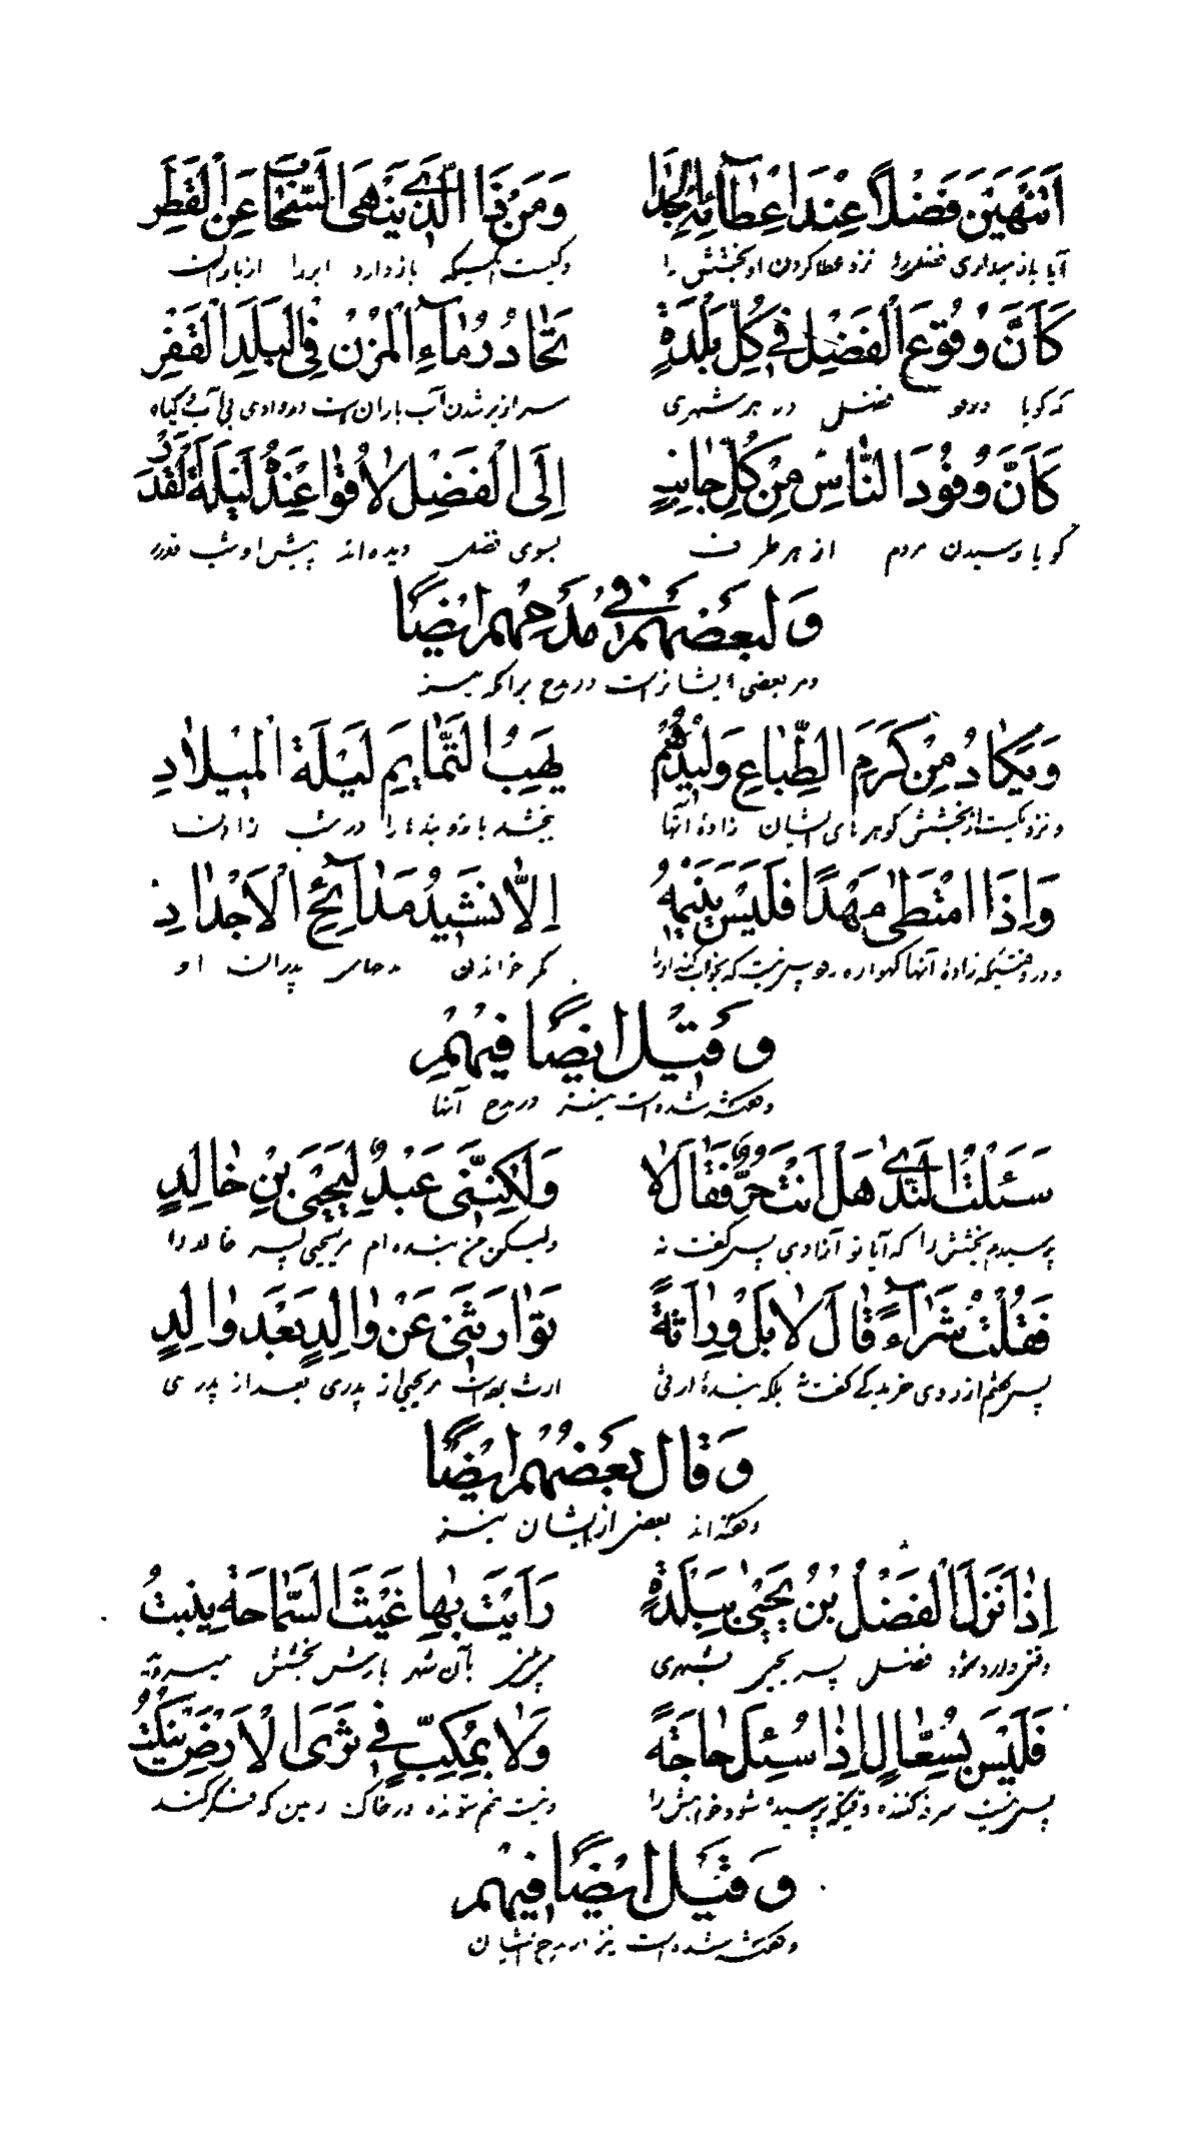 اَتَنْهَيْنَ فَضْلًا عِنْدَ اِعْطَآئِهِ الْجَدَا وَمَنْ ذَا الَّذِي يَنْهَى السَّحَابَ عَنِ الْقَطْرِ
آیا باز میداری فضل را نزد عطا کردن او بخشش را وکیست آنکسیکه باز دارد ابر را از باران
كَاَنَّ وُقُوعَ الْفَضْلِ فِي كُلِّ بَلْدَةٍ تَحَادُرُ مَآءِ الْمُزْنِ فِي الْبَلَدِ الْقَفْرِ
که گویا فضل در هر شهری سرازیر شدن آب باران است در وادی بی آب وگیاه
كَاَنَّ وُفُودَ النَّاسِ مِنْ كُلِّ جَانِبٍ اِلَى الْفَضْلِ لَاقُوا عِنْدَهُ لَيْلَةَ الْقَدْرِ
گویا رسیدن مردم از هر طرف بسوی فضل دیده اند پیش او شب قدر را
وَلِبَعْضِهِمْ فِي مَدْحِهِمْ اَيْضًا
ومر بعضی ایشانراست در مدح برامکه نیز
وَيَكَادُ مِنْ كَرَمِ الطِّبَاعِ وَلِيدُهُمْ يَهَبُ التَّمَايِمَ لَيْلَةَ الْمِيلَادِ
ونزدیکست از بخشش گوهرهای ایشان زادهٔ آنها ببخشد بازو بندها را در شب زادن
وَاِذَا امْتَطَى مَهْدًا فَلَيْسَ يُنِيمُهُ اِلَّا نَشِيدُ مَدَآئِحِ الْاَجْدَادِ
ودر وقتیکه زادهٔ آنها گهواره رود پس نیست که بخواب کند اورا مگر خواندن مدحهای پدران او
وَقِيلَ اَيْضًا فِيهِمْ
وگفته شده است نیز در مدح آنها
سَئَلْتُ النَّدَى هَلْ اَنْتَ حُرٌّ فَقَالَ لَا وَلَكِنَّنِي عَبْدٌ لِيَحْيَى بْنِ خَالِدٍ
پرسیدم بخشش را که آیا تو آزادی پس گفت نه ولیکن من بنده ام مر یحیی پسر خالد را
فَقُلْتُ شِرَآءً قَالَ لَا بَلْ وِرَاثَةً تَوَارَثَنِي عَنْ وَالِدٍ بَعْدَ وَالِدٍ
پس گفتم از روی خریدگی گفت نه بلکه بندهٔ ارثی ارث مر یحیی از پدری بعد از پدری
وَقَالَ بَعْضُهُمْ اَيْضًا
وگفته اند بعضی از ایشان نیز
اِذَا نَزَلَ الْفَضْلُ بْنُ يَحْيَى بِبَلْدَةٍ رَاَيْتَ بِهَا غَيْثَ السَّمَاحَةِ يَنْبُتُ
وقتی وارد شود فضل پسر یحیی بشهری میبینی بآن شهر بارش بخشش میروید
فَلَيْسَ بِسَعَّالٍ اِذَا سُئِلَ حَاجَةً وَلَا بِمُكِبٍّ فِي ثَرَى الْاَرْضِ يَنْكُتُ
پس نیست سرفه کننده وقتیکه پرسیده شود خواهش را ونیست خم شونده در خاک زمین که فکر کند
وَقِيلَ اَيْضًا فِيهِمْ
وگفته شده است نیز در مدح ایشان